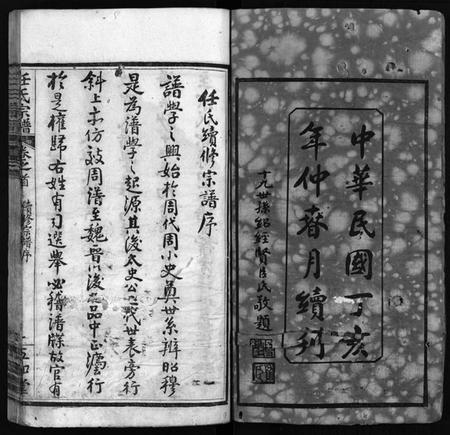 中華民國丁亥
年仲春月續刊
十九世孫紹經賢臣氏敬題
任氏續修宗譜序
譜學之興始於周代周小史奠世系辨昭穆
是為譜學之起源其後太史公三代世表旁行
斜上亦仿效周譜至魏晉以後九品中正濫行
於是權歸右姓有司選舉必稽譜牒故官有
任氏宗譜
卷之首
續修宗譜序
五知堂